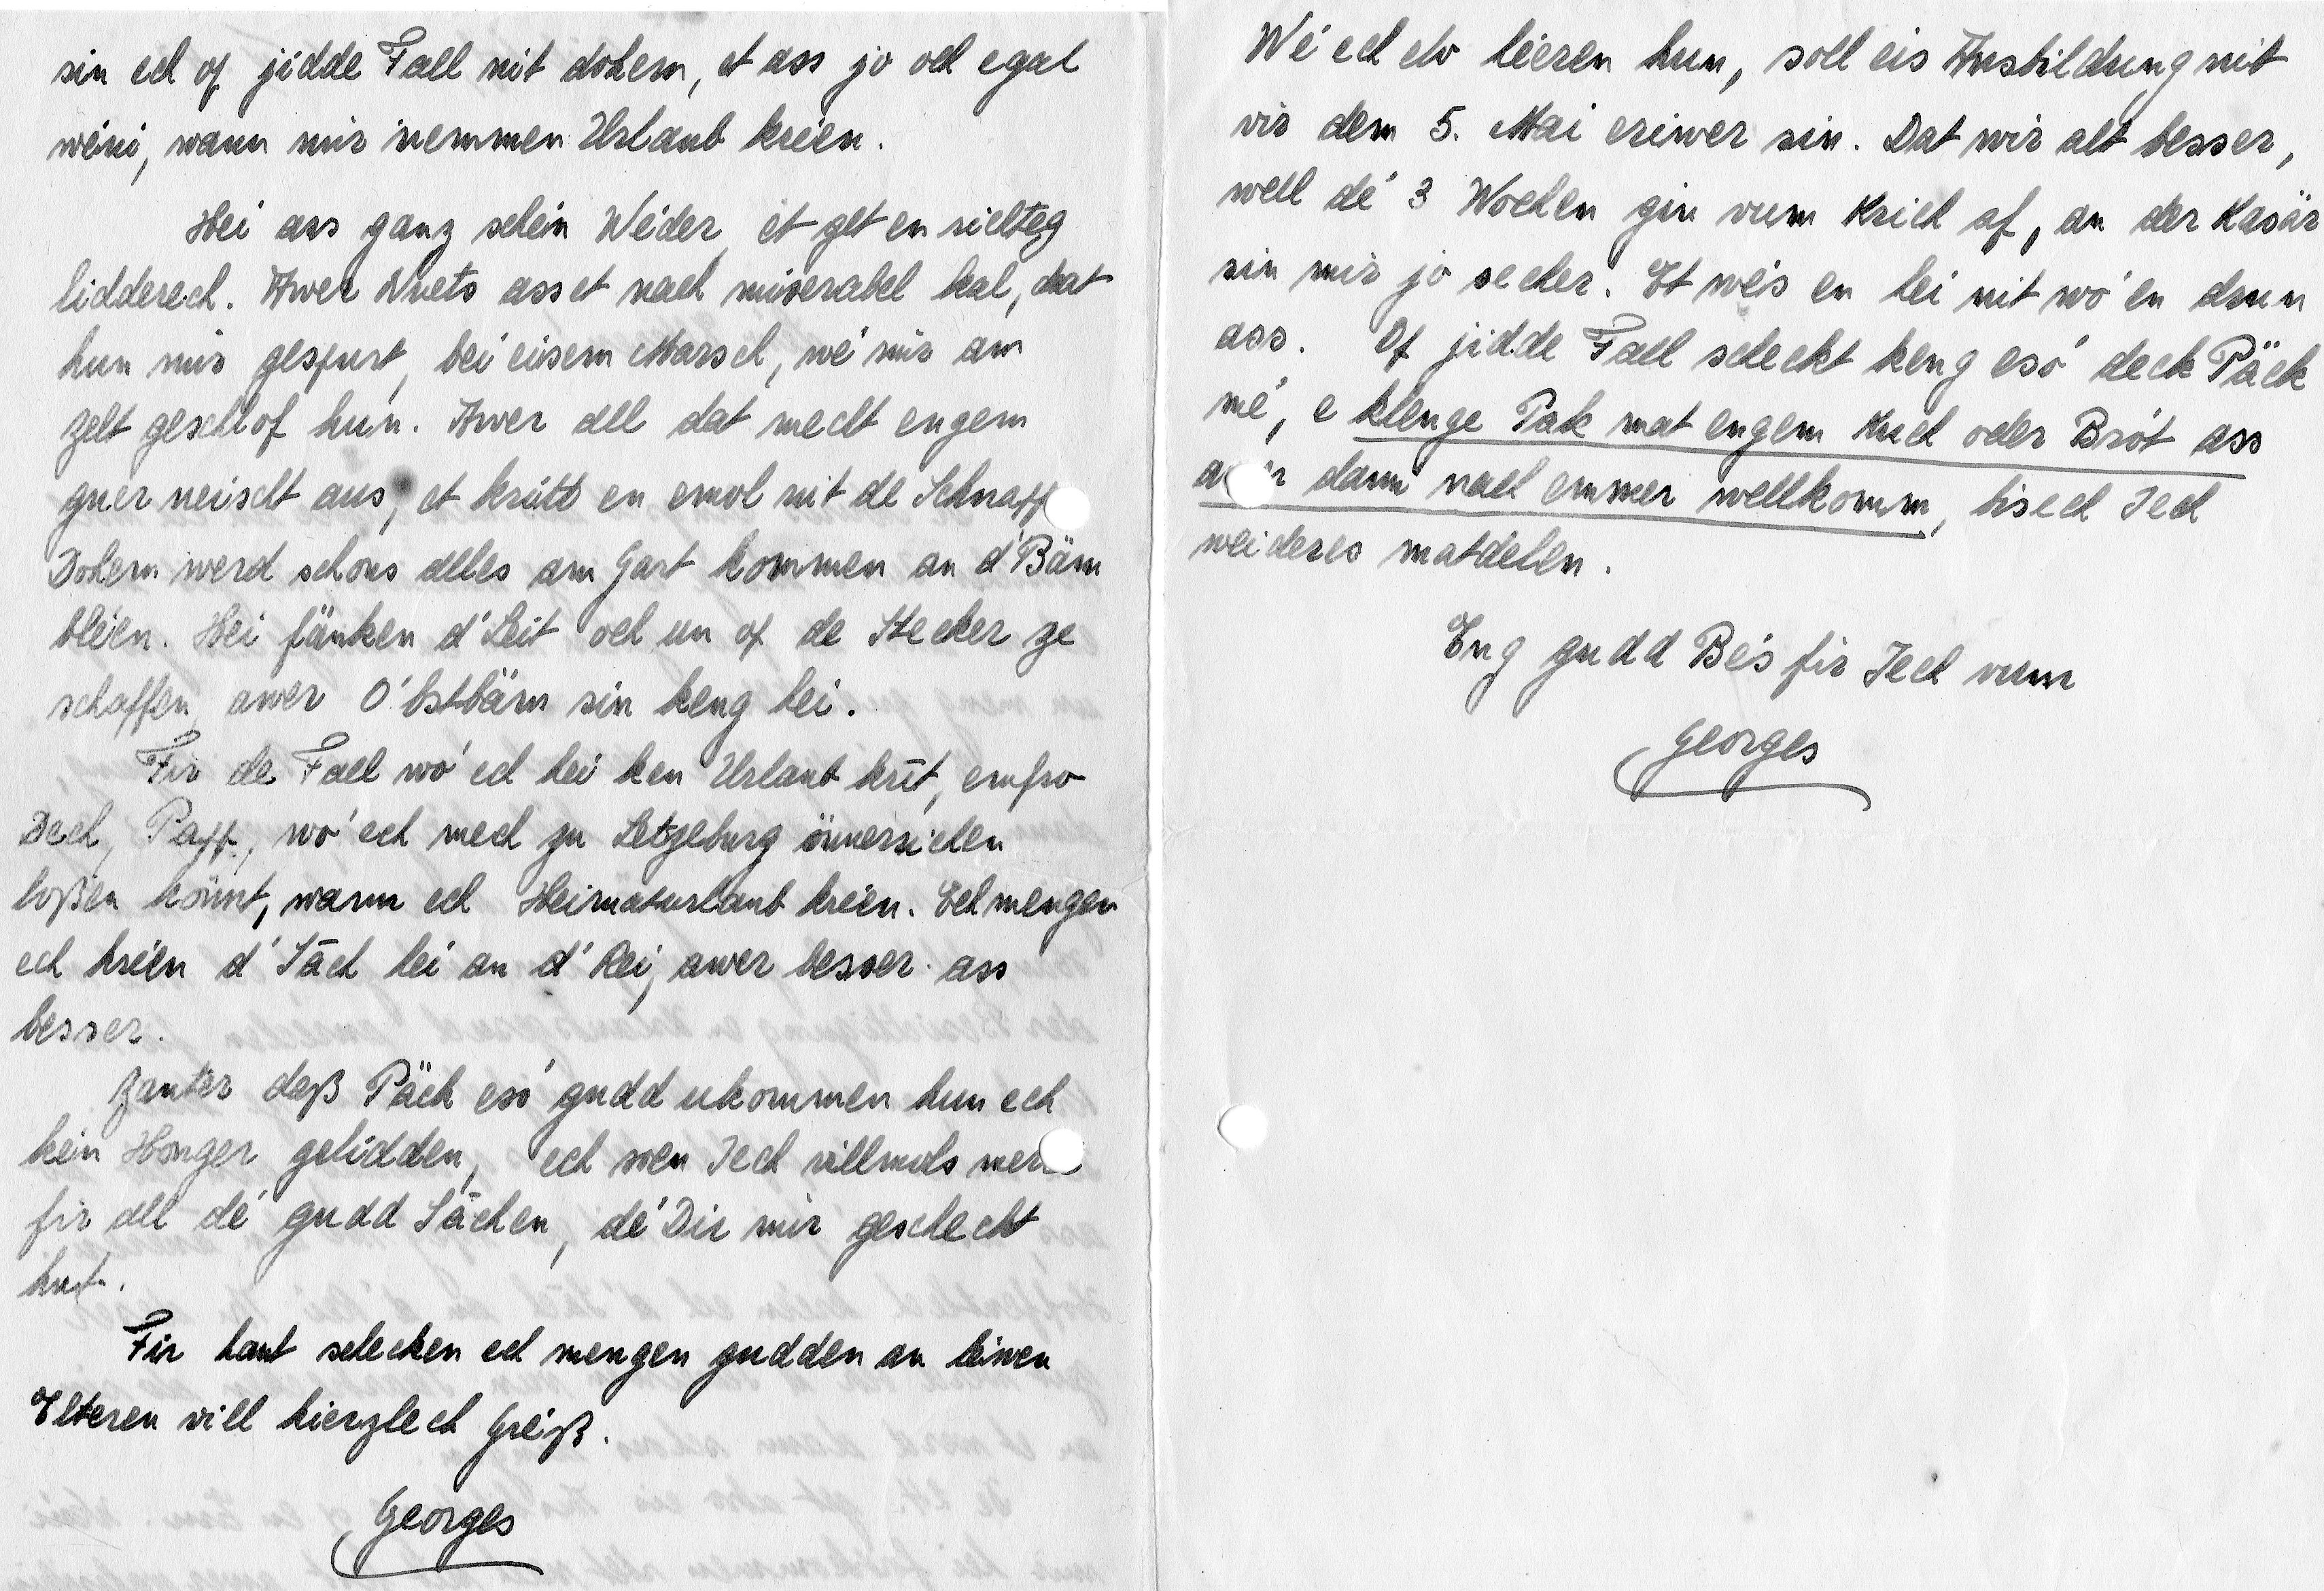 sin ech of jidde Fall nit dohem, et ass jo och egal
wéini, wann mir nemmen Urlaub kréien.
Hei ass ganz schéin Wéider, et get en richteg
lidderech. Awer Nuets ass et nach miserabel kal, dat
hun mir gespurt, bei eisem Marsch, wé mir am
Zelt geschlof hun. Awer all dat mecht engem
guer neischt aus, et kritt en emol nit de Schnapp
Dohem werd schons alles am Gart kommen an d'Bäm
bléien. Hei fänken d'Leit och un of de Stecker ze
schaffen, awer O'bstbäm sin keng hei.
Fir de Fall wo' ech hei ken Urlaub krit, emfro
Dech, Papp, wo' ech mech zu Letzeburg önnersichen
loßen könnt, wann ech Heimaturlaub kréien. Ech mengen
ech kréien d'Säch hei an d'Rei, awer besser ass
besser.
Zanter daß Päck esó gudd ukommen hun ech
kein Honger gelidden, ech soen Iech villmols merci
fir all dé gudd Sächen, dé Dir mir geschecht
hut.
Fir haut schecken ech mengen gudden an léiwen
Elteren vill hierzlech Gréiß.
Georges
Wé ech elo héieren hun, soll eis Ausbildung nit
vir dem 5. Mai eriwer sin. Dat wir alt besser,
well dé 3 Wochen gin vum Krich af, an der Kasär
sin mir jo secher. Et wés en hei nit wó en drun
ass. Of jidde Fall scheckt keng esó deck Päck
mé, e klenge Pak mat engem Kuch oder Brót ass
awer dann nach emmer wellkomm, bis ech Iech
weideres matdelen.
Eng gudd Bés fir Iech vum
Georges